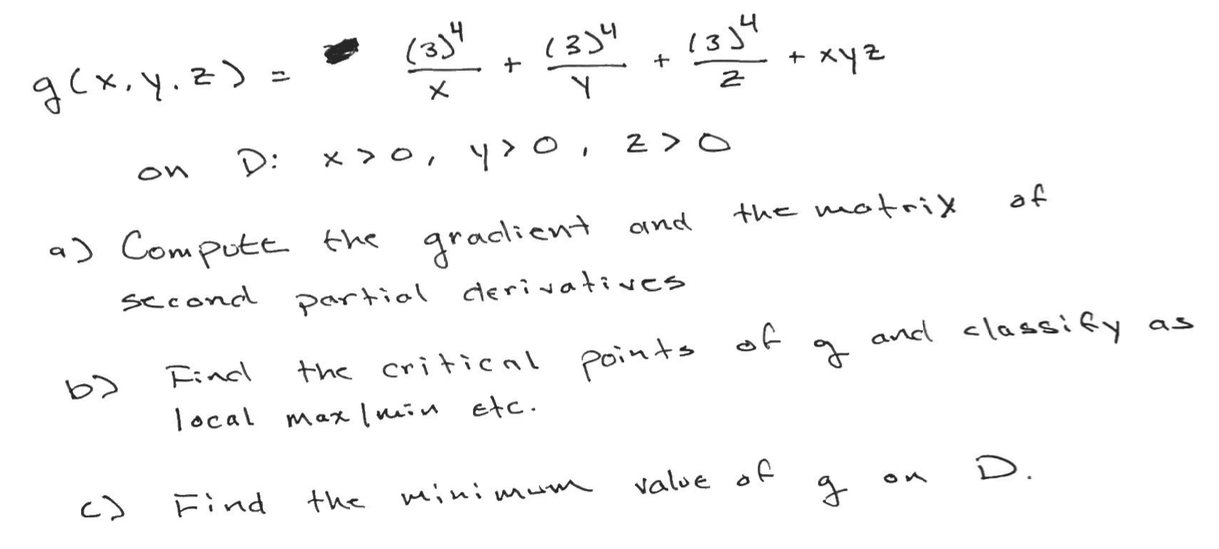 g(x,y.z) = (3)^4/x + (3)^4/y + (3)^4/z + xyz
on D: x>0, y>0, z>0
a) Compute the gradient and the matrix of
second partial derivatives
b) Find the critical points of g and classify as
local max/min etc.
c) Find the minimum value of g on D.